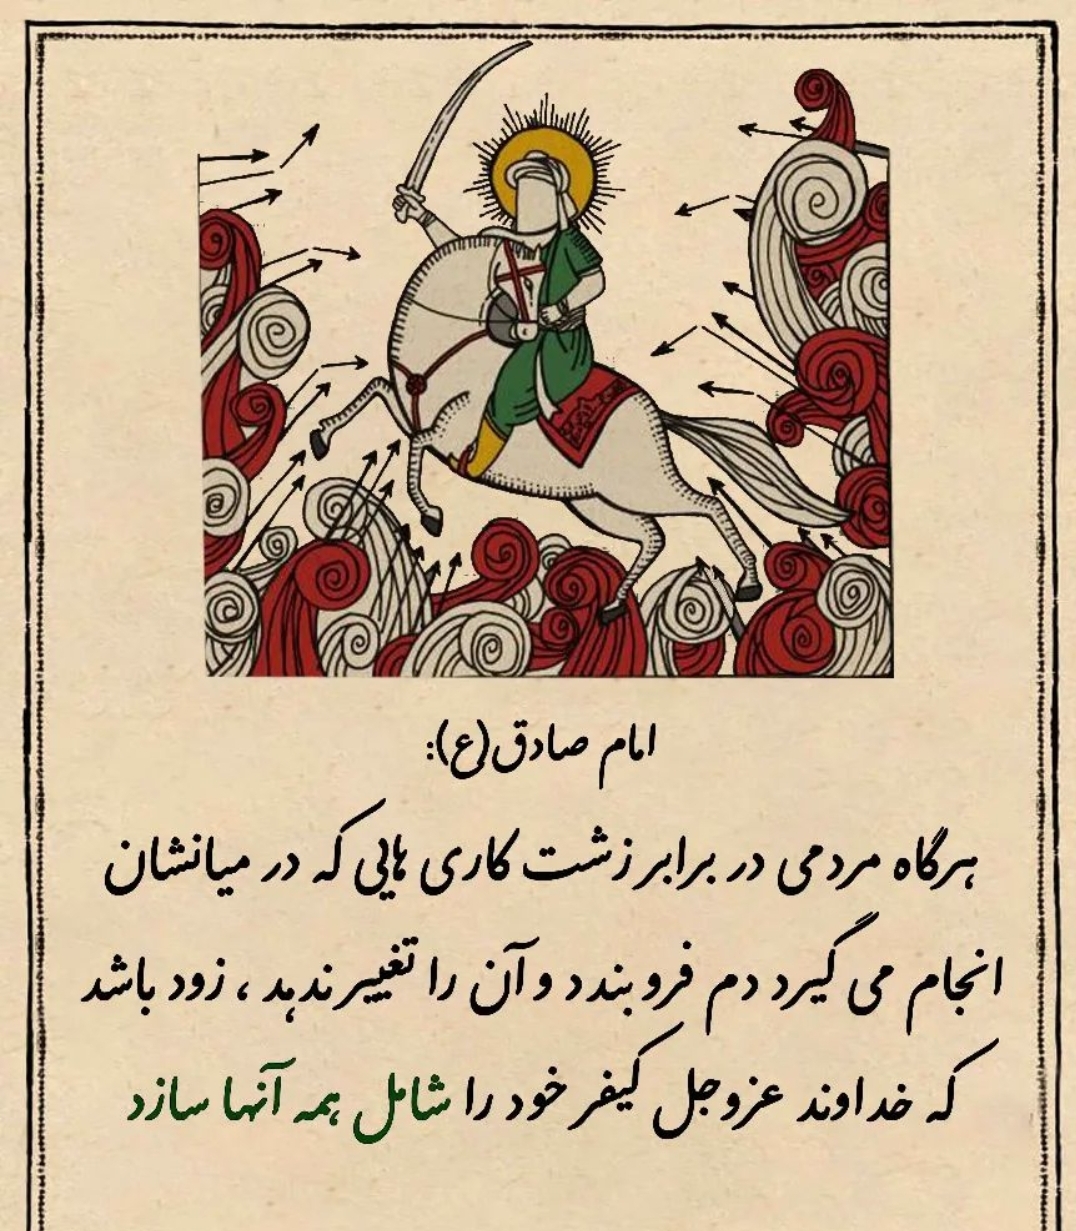 امام صادق(ع):
هرگاه مردمی در برابر زشت کاری هایی که در میانشان
انجام می گیرد دم فرو بندد و آن را تغییر ندهد ، زود باشد
که خداوند عزوجل کیفر خود را شامل همه آنها سازد